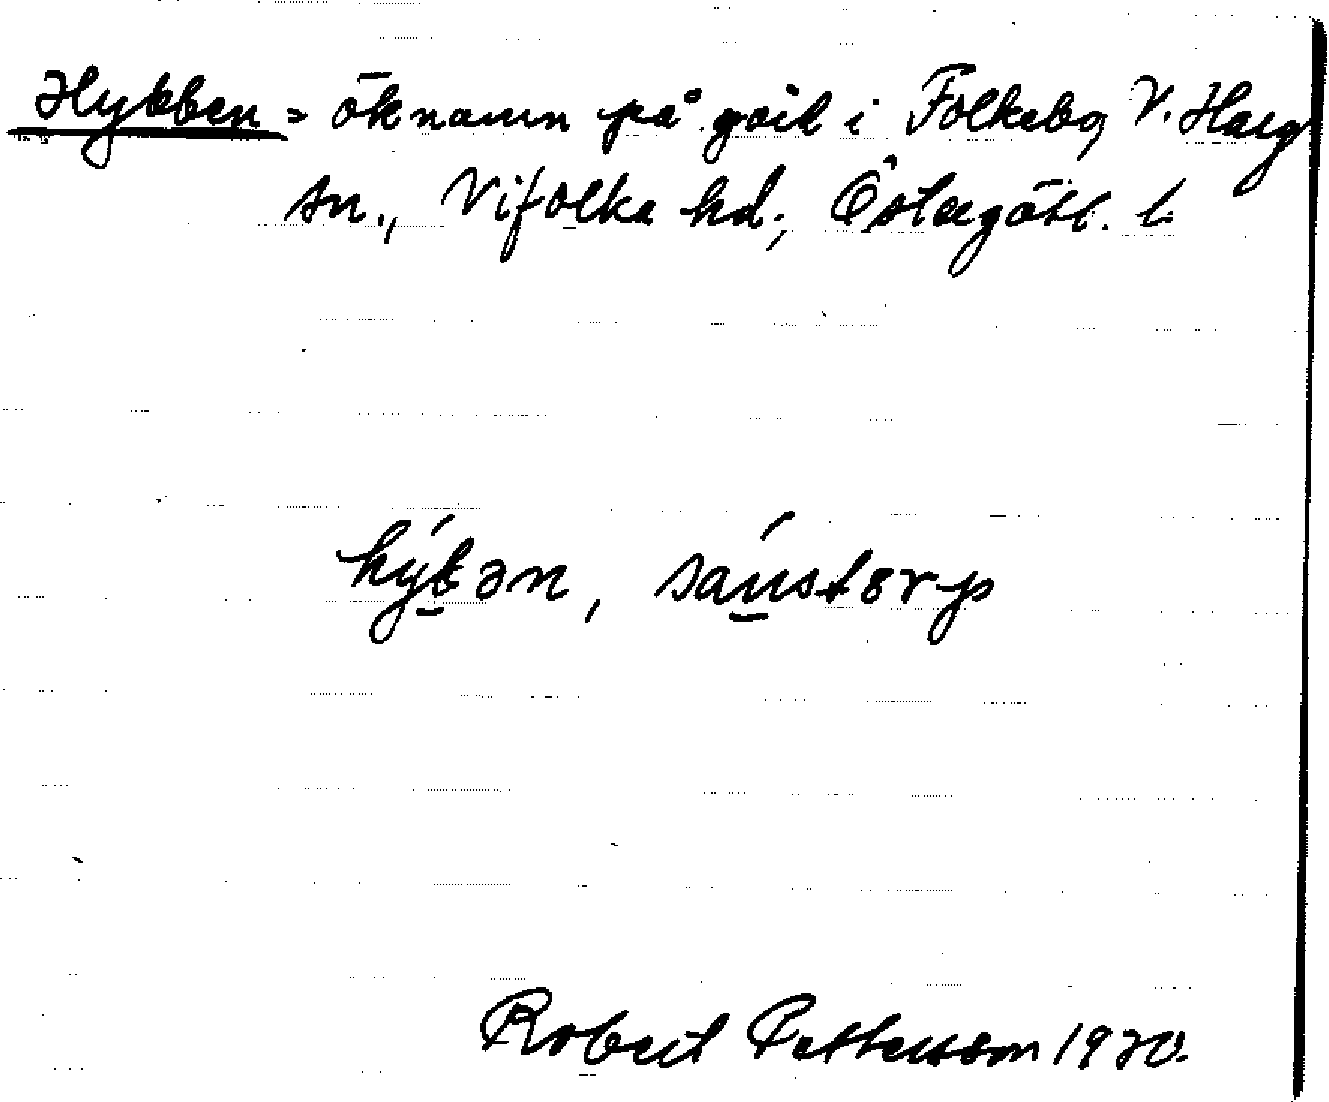 Hybben = öknamn på gård i Folkebo, V. Harg
sn., Vifolka hd., Östergötl. l.
hýb̲ən, sáu̲storp
Robert Pettersson 1920.